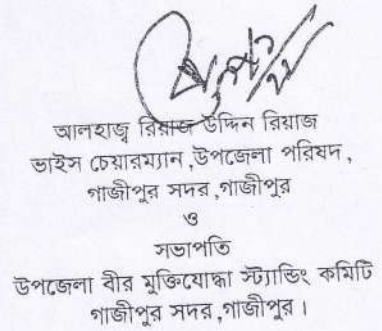 আলহাজ্ব রিয়াজ উদ্দিন রিয়াজ
ভাইস চেয়ারম্যান,উপজেলা পরিষদ,
গাজীপুর সদর,গাজীপুর
ও
সভাপতি
উপজেলা বীর মুক্তিযোদ্ধা স্ট্যান্ডিং কমিটি
গাজীপুর সদর,গাজীপুর।